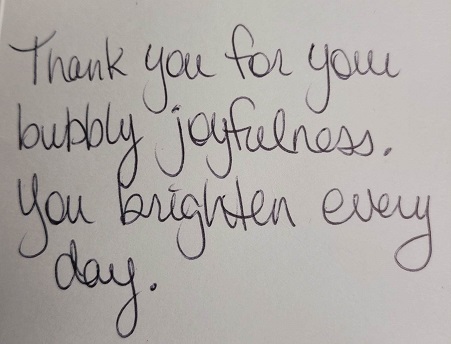 Thank you for your
bubbly joyfulness.
You brighten every
day.